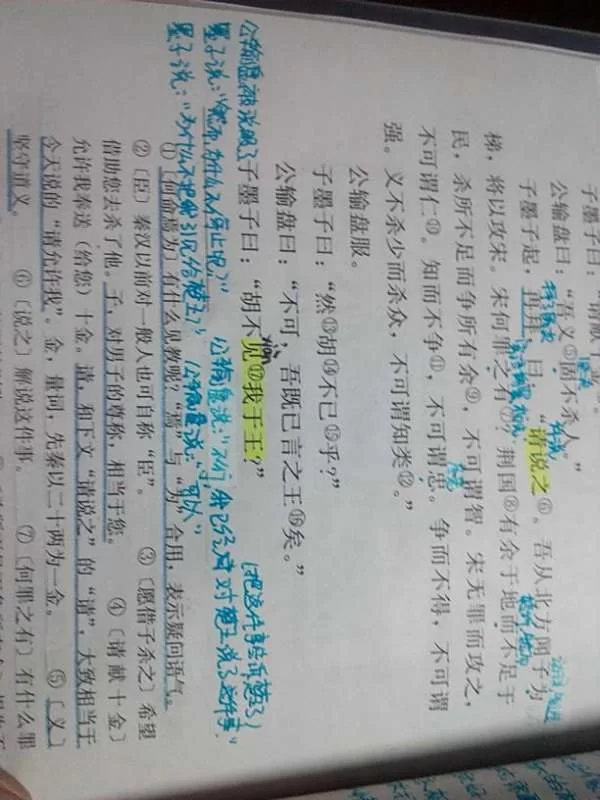 子墨子曰："请献十金。"
公输盘曰："吾义⑤固不杀人。"
子墨子起，再拜，曰："请说之⑥。吾从北方闻子为
梯，将以攻宋。宋何罪之有⑦？荆国⑧有余于地而不足于
民，杀所不足而争所有余⑨，不可谓智。宋无罪而攻之，
不可谓仁⑩。知而不争⑪，不可谓忠。争而不得，不可谓
强。义不杀少而杀众，不可谓知类⑫。"
公输盘服。
子墨子曰："然⑬胡⑭不已⑮乎？"
公输盘曰："不可，吾既已言之王⑯矣。"
子墨子曰："胡不见⑰我于王？"
公输盘被说服了
墨子说："然而，为什么不停止呢？" 公输盘说："不行，我已经对楚王说了这件事"
墨子说："为什么不把我引见给楚王？" 公输盘说："可以"
①〔何命焉为〕有什么见教呢？"焉"与"为"合用，表示疑问语气。
②〔臣〕秦汉以前对一般人也可自称"臣"。 ③〔愿借子杀之〕希望
借助您去杀了他。子，对男子的尊称，相当于您。 ④〔请献十金〕
允许我奉送（给您）十金。请，和下文"请说之"的"请"，大致相当于
今天说的"请允许我"。金，量词，先秦以二十两为一金。 ⑤〔义〕
坚守道义。 ⑥〔说之〕解说这件事。 ⑦〔何罪之有〕有什么罪